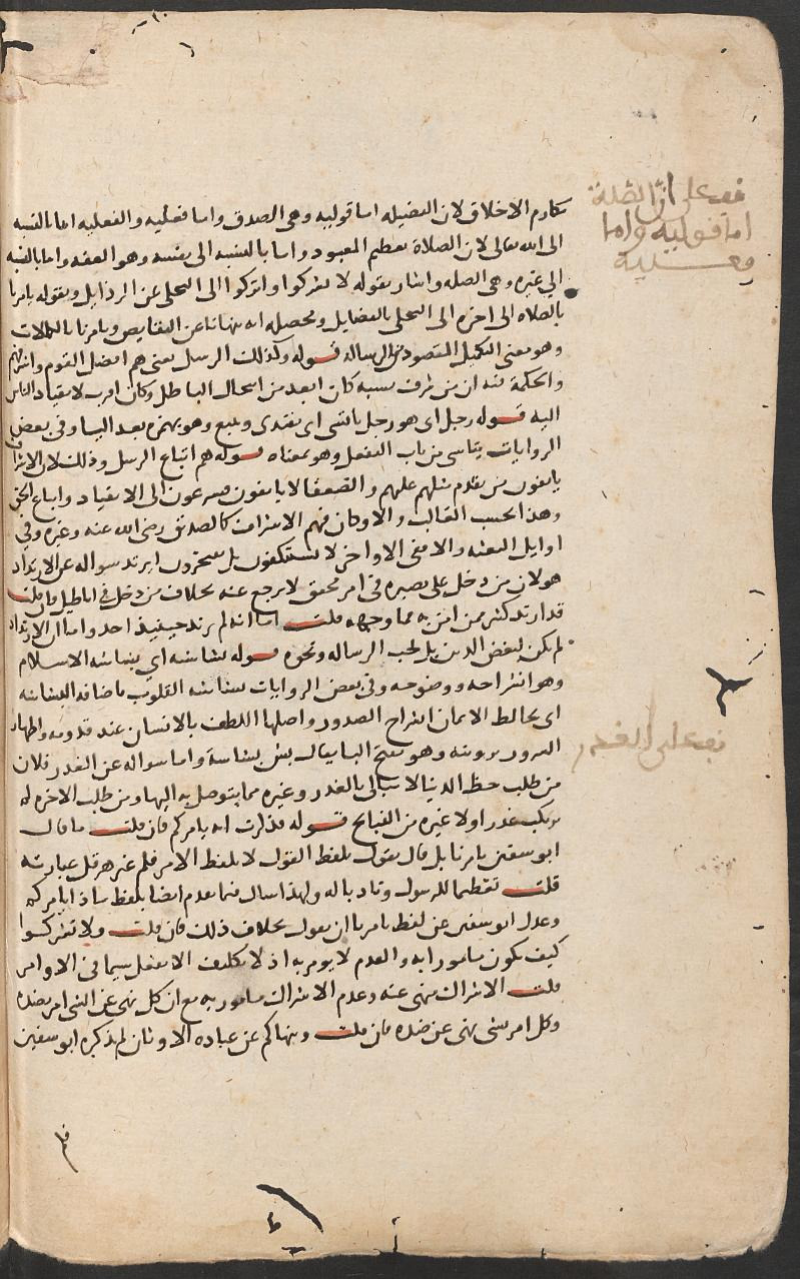 مكارم الاخلاق لان الفضيله اما قوليه وهى الصدق واما فعليه والفعليه اما بالنسبه
الى الله تعالى لان الصلاة تعظيم المعبود واما بالنسبه الى نفسه وهو العفه واما بالنسبه
الى غيره وهى الصله واشار بقوله لا تشركوا واتركوا الى التخلى عن الرذايل وبقوله يامرنا
بالصلاه الى اخره الى التحلى بالفضايل ومحصله انه ينهانا عن النقايص ويامرنا بالكمالات
وهو معنى التكميل المقصود من الرساله قوله وكذلك الرسل يعنى هم افضل القوم واشرفهم
والحكمة فيه ان من شرف نسبه كان ابعد من انتحال الباطل وكان اقرب لانقياد الناس
اليه قوله رجل اى هو رجل ياتسى اى يقتدى ويتبع وهو بهمزه بعد اليا وفى بعض
الروايات يتاسى من باب التفعل وهو بمعناه قوله هم اتباع الرسل وذلك لان الاشراف
يانفون من تقدم مثلهم عليهم والضعفا لا يانفون فيسرعون الى الانقياد واتباع الحق
وهذا بحسب الغالب والا وكان فيهم الاشراف كالصديق رضى الله عنه وغيره وفى
اوايل البعثه والا ففى الاواخر لا يستنكفون بل يفتخرون ايرتد سواله عن الارتداد
هو لان من دخل على بصيره فى امر محقق لا يرجع عنه بخلاف من دخل فى اباطيل فان قلت
قد ارتد كثير ممن امن به فما وجهه قلت اما انه لم يرتد حينيذ احد واما ان الارتداد
لم يكن لبغض الدين بل لحب الرساله ونحوه قوله بشاشته اى بشاشه الاسلام
وهو انشراحه ووضوحه وفى بعض الروايات بشاشه القلوب باضافه البشاشه
اى يخالط الايمان انشراح الصدور واصلها اللطف بالانسان عند قدومه واظهار
السرور برويته وهو بفتح البا يقال بش بشاشة واما سواله عن الغدر فلان
من طلب حظ الدنيا لا يبالى بالغدر وغيره مما يتوصل به اليها ومن طلب الاخره لم
يرتكب غدرا ولا غيره من القبايح قوله فذكرت انه يامركم فان قلت ما قال
ابو سفين يامرنا بل قال يقول بلفظ القول لا بلفظ الامر فلم غير هرقل عبارته
قلت تعظيما للرسول وتادبا له ولهذا سال فيما تقدم ايضا بلفظ ماذا يامركم
وعدل ابو سفين عن لفظ يامرنا ان يقول بخلاف ذلك فان قلت ولا تشركوا
كيف يكون مامورا به والعدم لا يومر به اذ لا تكليف الا بفعل سيما فى الاوامر
قلت الاشراك منهى عنه وعدم الاشراك مامور به مع ان كل نهى عن الشى امر بضده
وكل امر بشى نهى عن ضده فان قلت وينهاكم عن عباده الاوثان لم يذكره ابو سفين
قف على ان الفضيلة
اما قوليه واما
فعليه
قف على الغدر